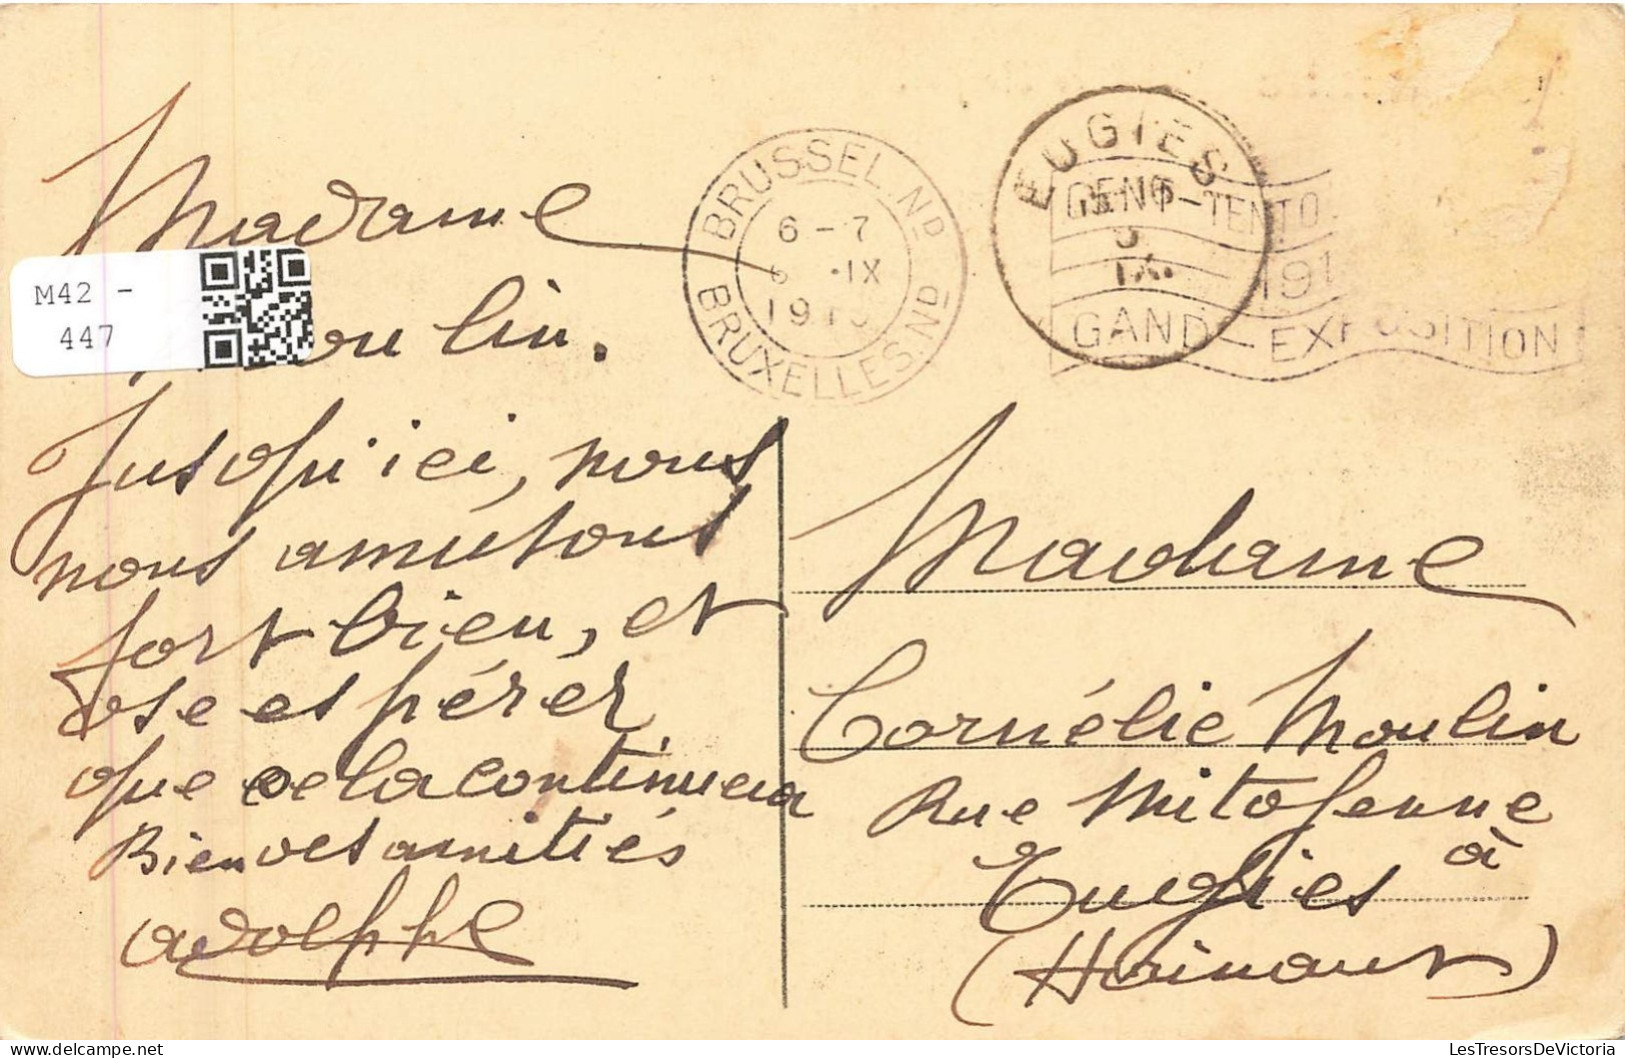 Madame
Moulin.
Jusqu'ici, nous
nous amusons
fort bien, et
ose espérer
que cela continuera
Bien des amitiés
Adolphe
M42 -
447
BRUSSEL. ND
6 - 7
IX
BRUXELLES. ND
EUGIES
IX.
GENT-TENTO
GAND-EXPOSITION
Madame
Cornélie Moulin
Rue
à
Eugies
(Hainaut)
LesTresorsDeVictoria